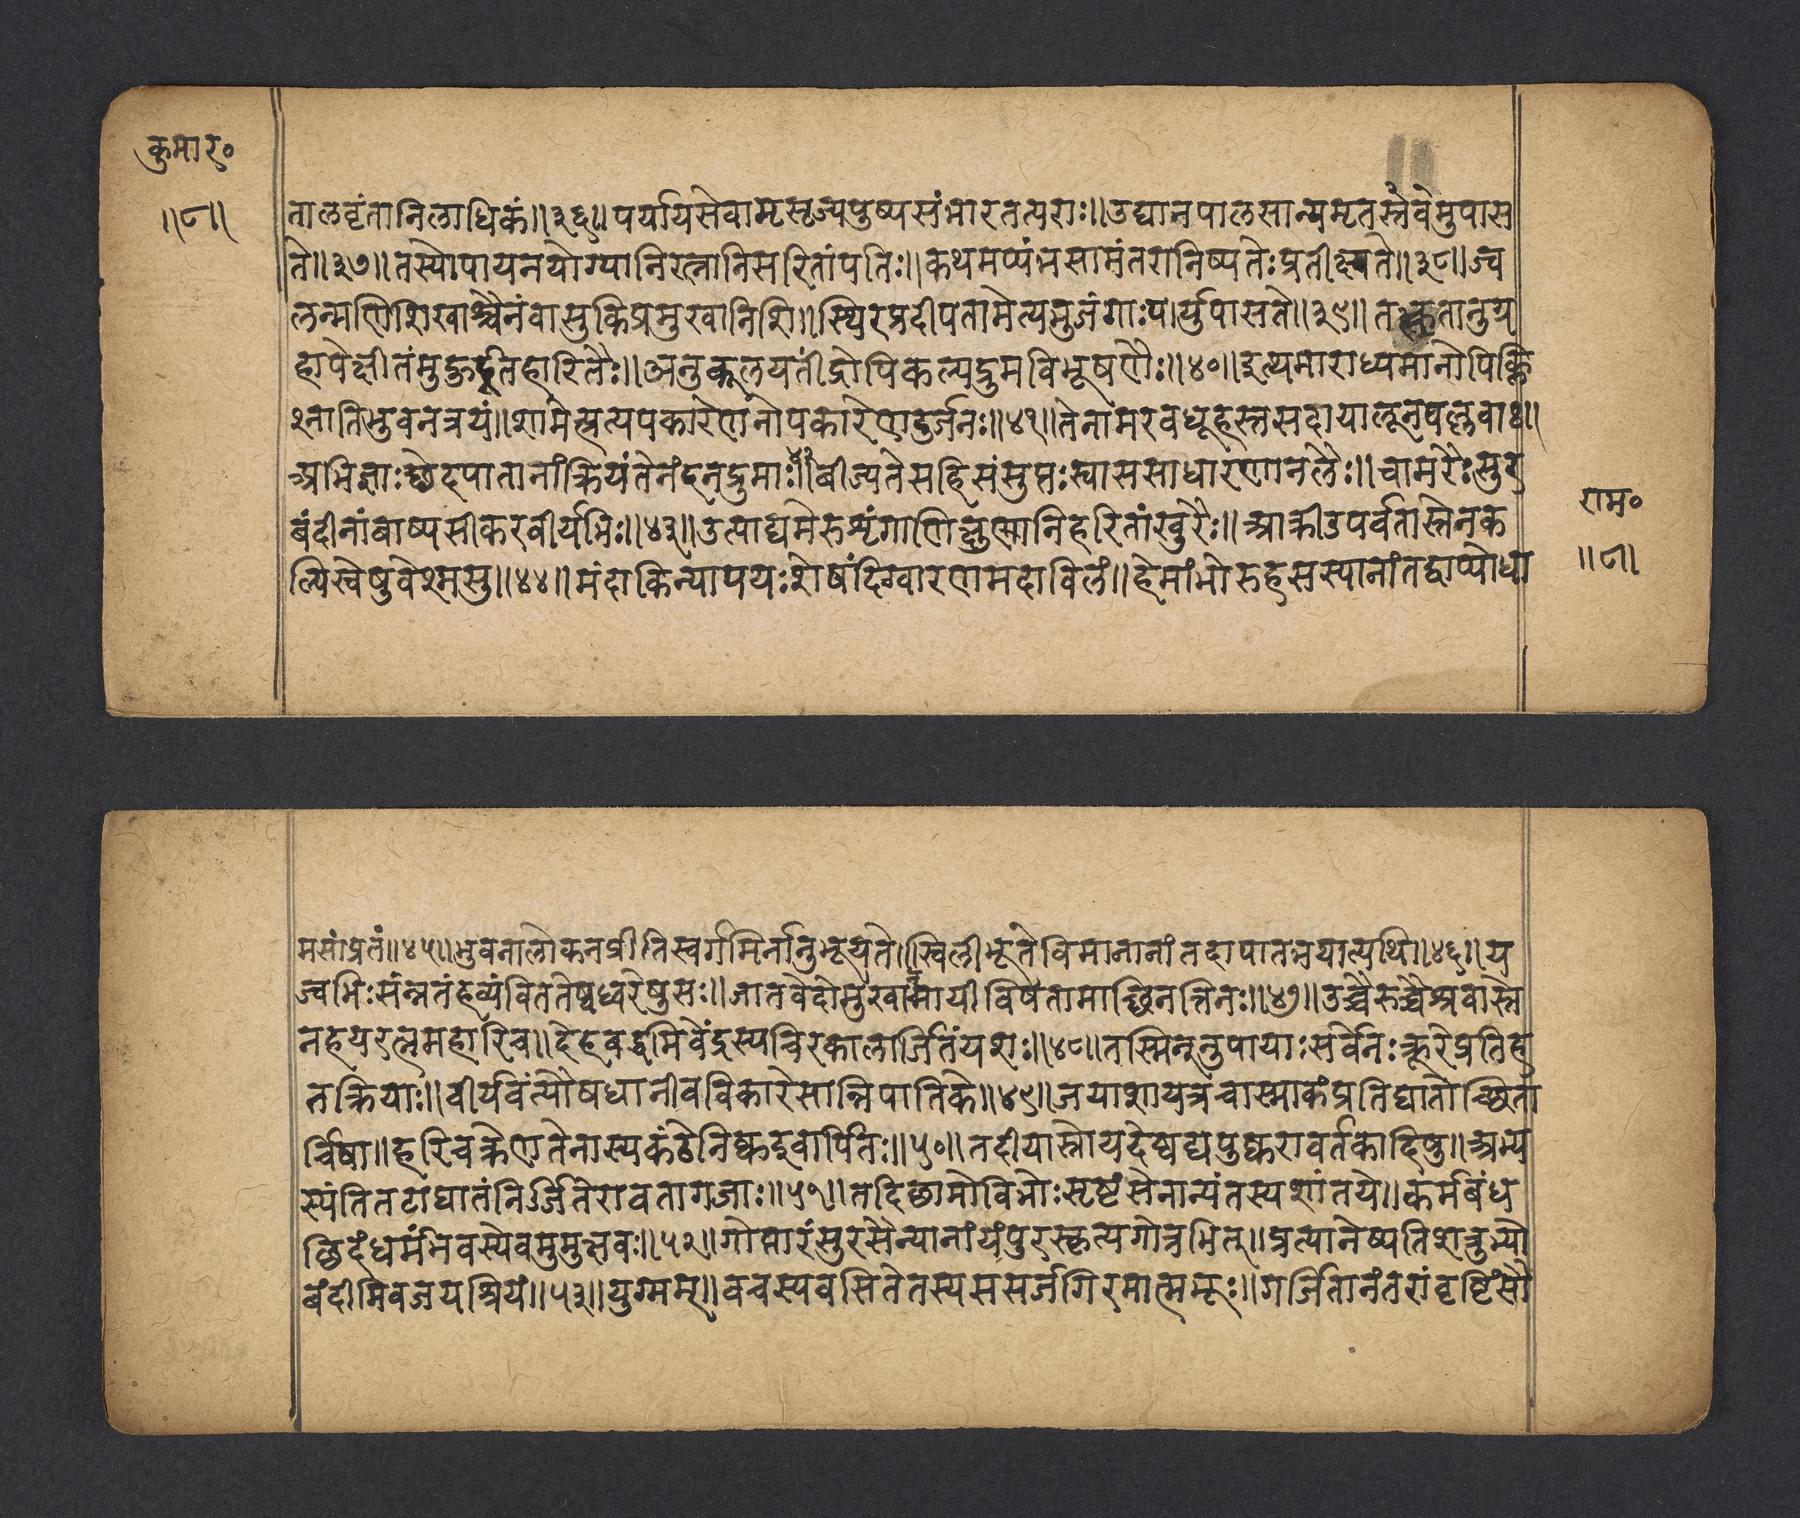 कुमार॰
॥८॥
तालवृंतानिलाधिकं॥३६॥पर्यायसेवामृत्सृज्यपुष्पसंभारतत्पराः॥उद्यानपालसान्यमृतस्तंवेमुपास
ते॥३७॥तस्योपायनयोग्यानिरत्नानिसरितांपतिः॥कथमप्यंभसामंतरानिष्पतेःप्रतीक्ष्यते॥३८॥ज्व
लन्मणिशिखाश्चैनंवासुकिप्रमुखानिशि॥स्थिरप्रदीपतामेत्यभुजंगाःपर्युपासते॥३९॥तत्कृतानुग्र
हापेक्षीतंमुहुर्दूतहारितैः॥अनुकूलयतींद्रोपिकल्पद्रुमविभूषणैः॥४०॥इत्थमाराध्यमानोपिक्लि
श्नातिभुवनत्रयं॥शामेत्प्रत्यपकारेणनोपकारेणदुर्जनः॥४१॥तेनामरवधूहस्तसदायालूनपल्लवाः॥
अभिज्ञाःछेदपातानांक्रियंतेनंदनद्रुमाः॥बीज्यतेसहिसंसुप्तःस्वाससाधारणानलैः॥चामरैःसुर
बंदीनांबाष्पसीकरवीर्यभिः॥४३॥उत्पाद्यमेरुशृंगाणिक्षुण्णानिहरितांखुरैः॥आक्रीडपर्वतास्तेनक
ल्पिस्वेषुवेश्मसु॥४४॥मंदाकिन्यापयःशेषंदिग्वारणमदाविलं॥हेमांभोरुहसस्यानांतद्वाप्योधा
राम॰
॥८॥
मसांप्रतं॥४५॥भुवनालोकनप्रीतिस्वर्गमिर्नानुभूयते॥खिलीभूतेविमानानांतदापातभयात्पथि॥४६॥य
ज्वभिःसंभृतंहव्यंविततेष्वध्वरेषुसः॥जातवेदोमुखान्मायीविषतामाच्छिनत्तिनः॥४७॥उच्चैरुच्चैश्रवास्ते
नहयरत्नमहारिच॥देहबद्धमिवेंद्रस्यचिरकालार्जितंयशः॥४८॥तस्मिन्नुपायाःसर्वेनःक्रूरेप्रतिह
तक्रियाः॥वीर्यवंत्यौषधानीवविकारेसान्निपातिके॥४९॥जयाशायत्रचास्माकंप्रतिघातोच्छिता
र्चिषा॥हरिचक्रेणतेनास्यकंठेनिष्कइवार्पितः॥५०॥तदीयास्तोयदेष्वद्यपुष्करावर्तकादिषु॥अभ्य
स्यंतितटाघातंनिर्जितैरावतागजाः॥५१॥तदिछामोविभोःसृष्टंसेनान्यंतस्यशांतये॥कर्मबंध
छिदंधर्मंभवस्येवमुमुक्षवः॥५२॥गोप्तारंसुरसैन्यानांयंपुरस्कृत्यगोत्रभित्॥प्रत्यानेष्यतिशत्रुभ्यो
बंदीमिवजयश्रियं॥५३॥युग्मम्॥वचस्यवसितेतस्यससर्जगिरमात्मभूः॥गर्जितानंतरांवृष्टिंसौ